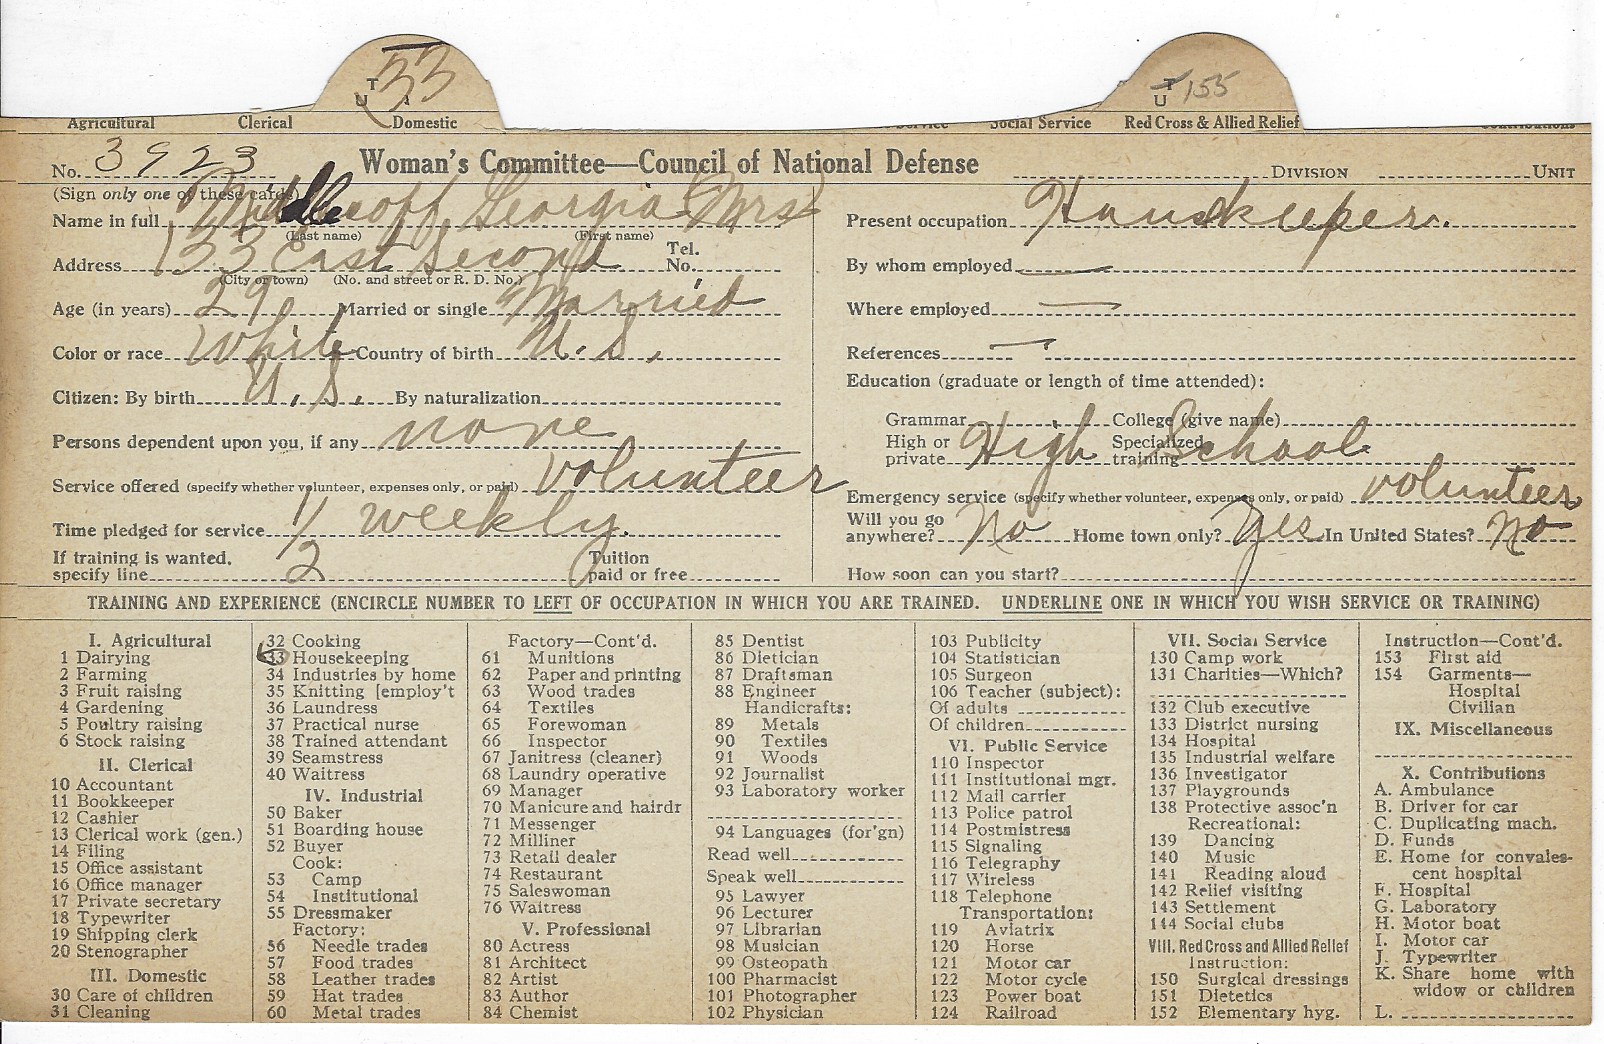 T 53
U
T 155
U
Agricultural Clerical Domestic Service Social Service Red Cross & Allied Relief Contributions
No. 3923 Woman's Committee—Council of National Defense DIVISION UNIT
(Sign only one of these cards)
Name in full Middlecoff Georgia Mrs
(Last name) (First name)
Address 133 East Second Tel. No.
(City or town) (No. and street or R. D. No.)
Age (in years) 29 Married or single Married
Color or race White Country of birth U. S.
Citizen: By birth U. S. By naturalization
Persons dependent upon you, if any none
Service offered (specify whether volunteer, expenses only, or paid) volunteer
Time pledged for service 1/2 weekly.
If training is wanted, specify line Tuition paid or free
Present occupation Houskeeper.
By whom employed —
Where employed —
References —
Education (graduate or length of time attended):
Grammar College (give name)
High or private High Specialized training School
Emergency service (specify whether volunteer, expenses only, or paid) volunteer
Will you go anywhere? No Home town only? Yes In United States? No
How soon can you start?
TRAINING AND EXPERIENCE (ENCIRCLE NUMBER TO LEFT OF OCCUPATION IN WHICH YOU ARE TRAINED. UNDERLINE ONE IN WHICH YOU WISH SERVICE OR TRAINING)
I. Agricultural
1 Dairying
2 Farming
3 Fruit raising
4 Gardening
5 Poultry raising
6 Stock raising
II. Clerical
10 Accountant
11 Bookkeeper
12 Cashier
13 Clerical work (gen.)
14 Filing
15 Office assistant
16 Office manager
17 Private secretary
18 Typewriter
19 Shipping clerk
20 Stenographer
III. Domestic
30 Care of children
31 Cleaning
32 Cooking
33 Housekeeping
34 Industries by home
35 Knitting [employ't
36 Laundress
37 Practical nurse
38 Trained attendant
39 Seamstress
40 Waitress
IV. Industrial
50 Baker
51 Boarding house
52 Buyer
Cook:
53 Camp
54 Institutional
55 Dressmaker
Factory:
56 Needle trades
57 Food trades
58 Leather trades
59 Hat trades
60 Metal trades
Factory—Cont'd.
61 Munitions
62 Paper and printing
63 Wood trades
64 Textiles
65 Forewoman
66 Inspector
67 Janitress (cleaner)
68 Laundry operative
69 Manager
70 Manicure and hairdr
71 Messenger
72 Milliner
73 Retail dealer
74 Restaurant
75 Saleswoman
76 Waitress
V. Professional
80 Actress
81 Architect
82 Artist
83 Author
84 Chemist
85 Dentist
86 Dietician
87 Draftsman
88 Engineer
Handicrafts:
89 Metals
90 Textiles
91 Woods
92 Journalist
93 Laboratory worker
94 Languages (for'gn)
Read well
Speak well
95 Lawyer
96 Lecturer
97 Librarian
98 Musician
99 Osteopath
100 Pharmacist
101 Photographer
102 Physician
103 Publicity
104 Statistician
105 Surgeon
106 Teacher (subject):
Of adults
Of children
VI. Public Service
110 Inspector
111 Institutional mgr.
112 Mail carrier
113 Police patrol
114 Postmistress
115 Signaling
116 Telegraphy
117 Wireless
118 Telephone
Transportation:
119 Aviatrix
120 Horse
121 Motor car
122 Motor cycle
123 Power boat
124 Railroad
VII. Social Service
130 Camp work
131 Charities—Which?
132 Club executive
133 District nursing
134 Hospital
135 Industrial welfare
136 Investigator
137 Playgrounds
138 Protective assoc'n
Recreational:
139 Dancing
140 Music
141 Reading aloud
142 Relief visiting
143 Settlement
144 Social clubs
VIII. Red Cross and Allied Relief
Instruction:
150 Surgical dressings
151 Dietetics
152 Elementary hyg.
Instruction—Cont'd.
153 First aid
154 Garments—
Hospital
Civilian
IX. Miscellaneous
X. Contributions
A. Ambulance
B. Driver for car
C. Duplicating mach.
D. Funds
E. Home for convales-
cent hospital
F. Hospital
G. Laboratory
H. Motor boat
I. Motor car
J. Typewriter
K. Share home with
widow or children
L.